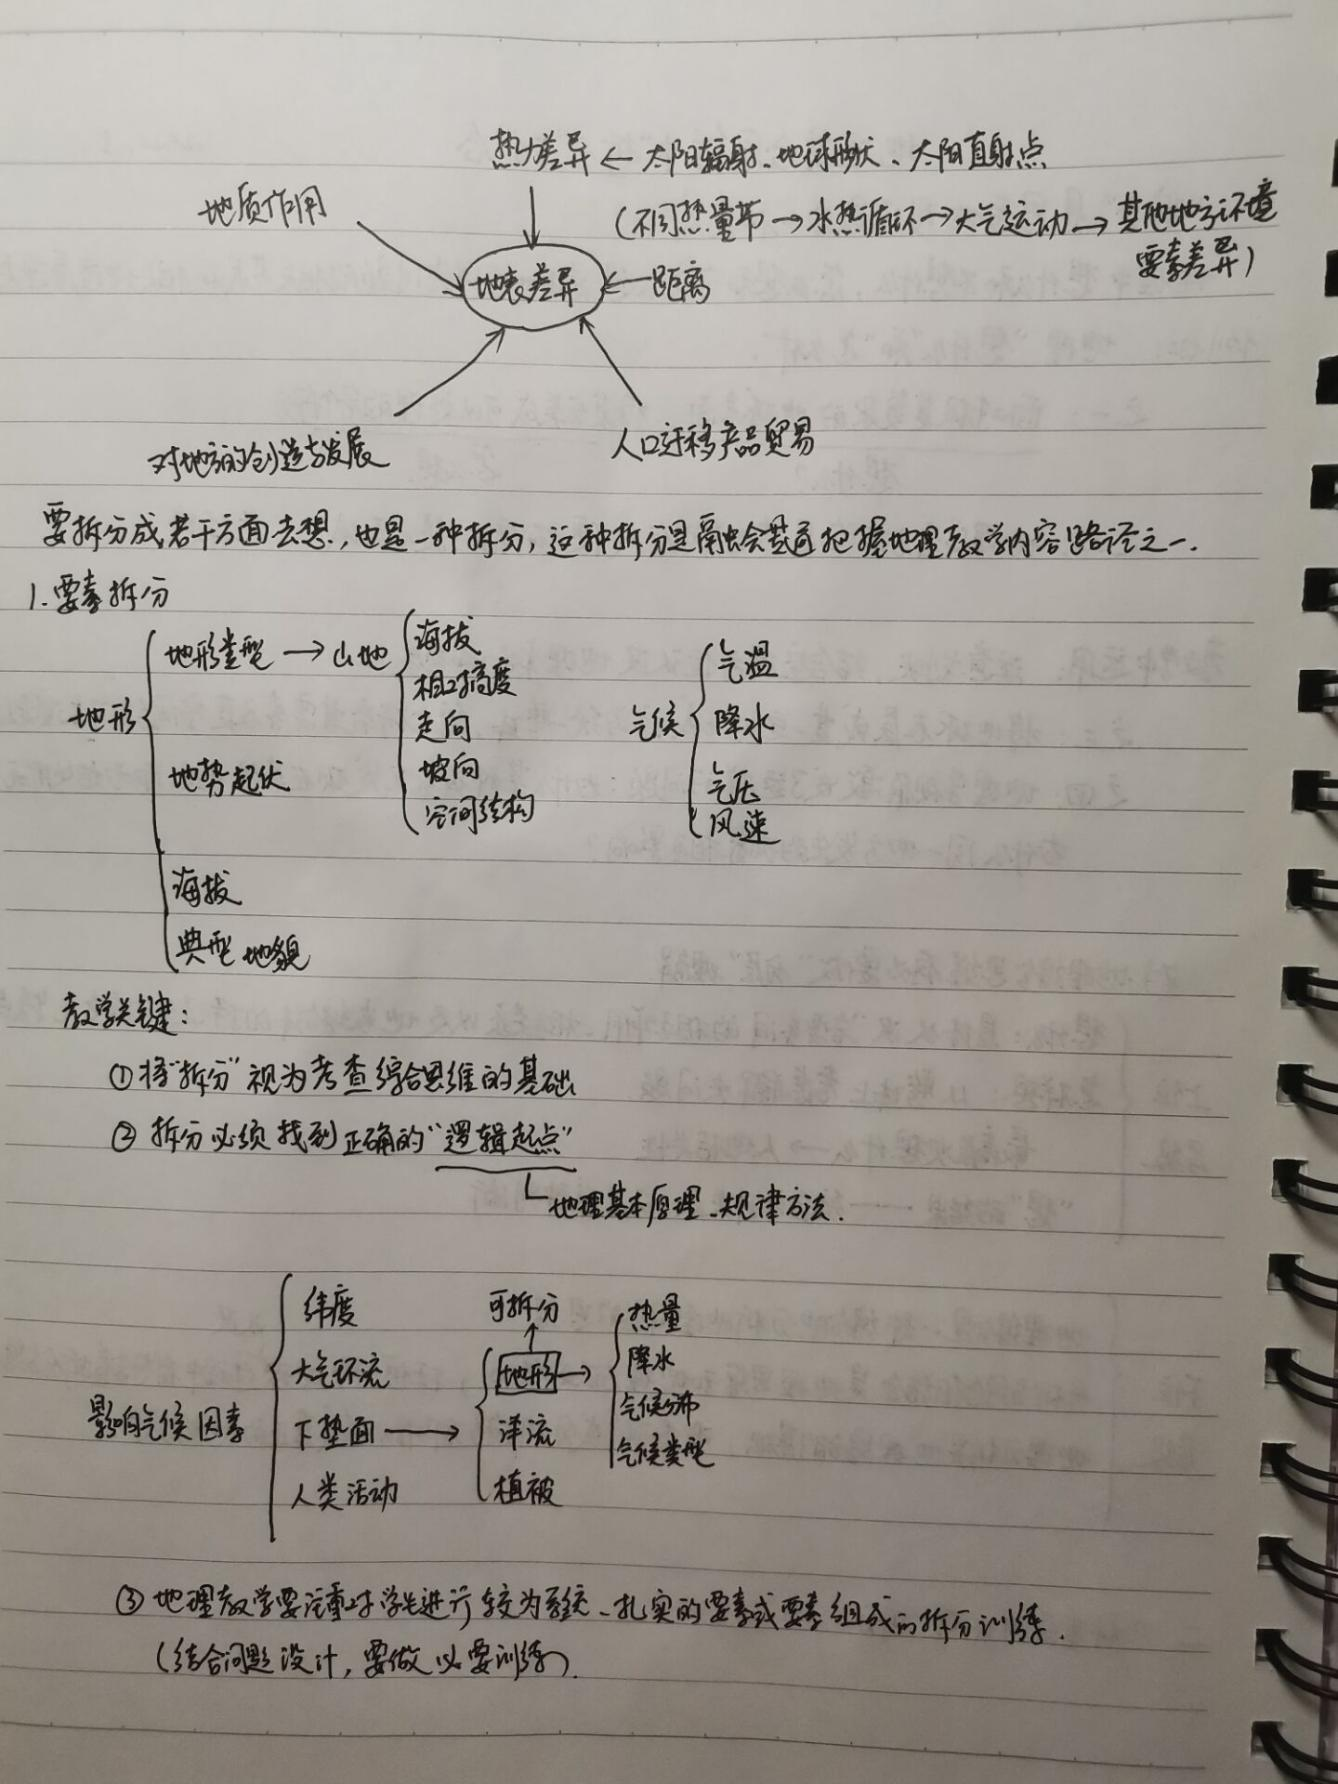 热力差异 ← 太阳辐射、地球形状、太阳直射点
地质作用
(不同热量带 → 水热循环 → 大气运动 → 其他地方环境
要素差异)
地表差异
距离
对地方的创造与发展
人口迁移产品贸易
要拆分成若干方面去想,也是一种拆分,这种拆分是融会贯通把握地理教学内容路径之一.
1.要素拆分
地形
地形类型 → 山地
海拔
相对高度
走向
坡向
空间结构
地势起伏
海拔
典型地貌
气候
气温
降水
气压
风速
教学关键:
① 将“拆分”视为考查综合思维的基础
② 拆分必须找到正确的“逻辑起点”
地理基本原理、规律方法.
影响气候因素
纬度
大气环流
下垫面 →
人类活动
可拆分
↑
地形 →
洋流
植被
热量
降水
气候分布
气候类型
③ 地理教学要注重对学生进行较为系统、扎实的要素或要素组成的拆分训练.
(结合问题设计,要做必要训练).